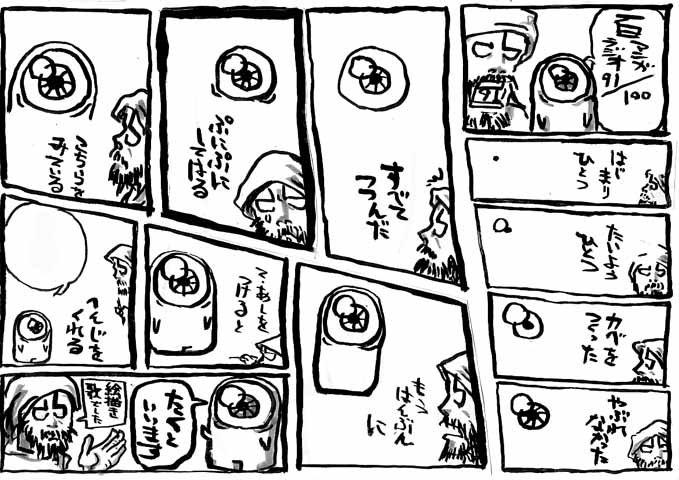 百
マンガ
91
100
91
はじ
まり
ひとつ
たいよう
ひとつ
カベを
つくった
やぶれ
なかった
すべて
つつんだ
ぷにぷに
してはる
まっ
はんぶん
に
てあしを
つけると
へんじを
くれる
たくと
いいます
絵描き
歌でした